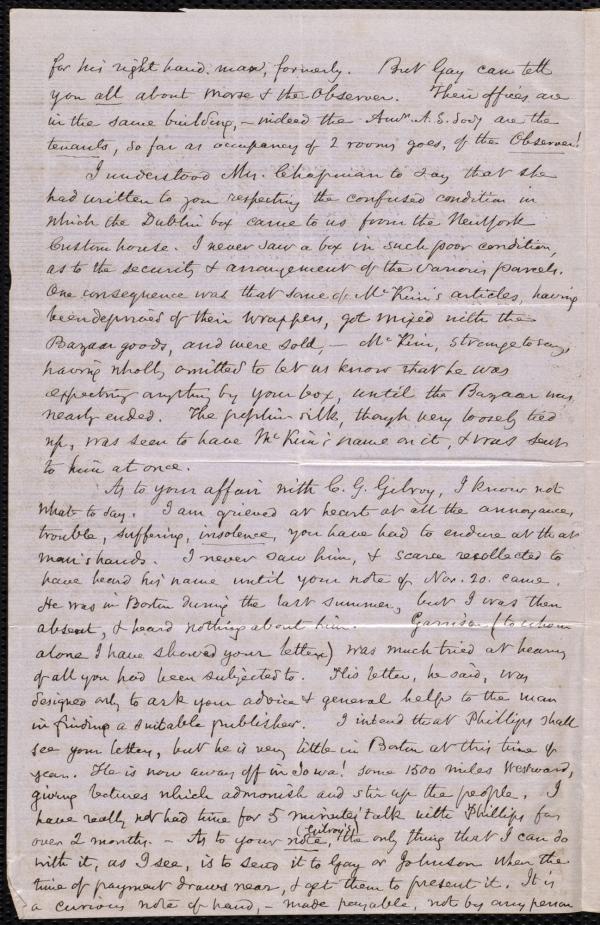 for his right hand man, formerly. But Gay can tell
you all about Morse & the Observer. Their offices are
in the same building, – indeed the Amn. A. S. Socy are the
tenants, so far as occupancy of 2 rooms goes, of the Observer!
I understood Mrs. Chapman to say that she
had written to you respecting the confused condition in
which the Dublin box came to us from the New York
Custom house. I never saw a box in such poor condition,
as to the security & arrangement of the various parcels.
One consequence was that some of McKim's articles, having
been deprived of their wrappers, got mixed with the
Bazaar goods, and were sold, – McKim, strange to say,
having wholly omitted to let us know that he was
expecting anything by your box, until the Bazaar was
nearly ended. The poplin silk, though very loosely tied
up, was seen to have McKim's name on it, & was sent
to him at once.
As to your affair with C. G. Gilroy, I know not
what to say. I am grieved at heart at all the annoyance,
trouble, suffering, insolence, you have had to endure at that
man's hands. I never saw him, & scarce recollected to
have heard his name until your note of Nov. 20. came.
He was in Boston during the last summer, but I was then
absent, & heard nothing about him. Garrison (to whom
alone I have showed your letters) was much tried at hearing
of all you had been subjected to. His letter, he said, was
designed only to ask your advice & general help to the man
in finding a suitable publisher. I intend that Phillips shall
see your letters, but he is very little in Boston at this time of
year. He is now away off in Iowa! some 1500 miles Westward,
giving lectures which admonish and stir up the people. I
have really not had time for 5 minutes' talk with Phillips for
over 2 months. – As to your note, (Gilroy's) the only thing that I can do
with it, as I see, is to send it to Gay or Johnson when the
time of payment draws near, & get them to present it. It is
a curious note of hand, – made payable, not by any person